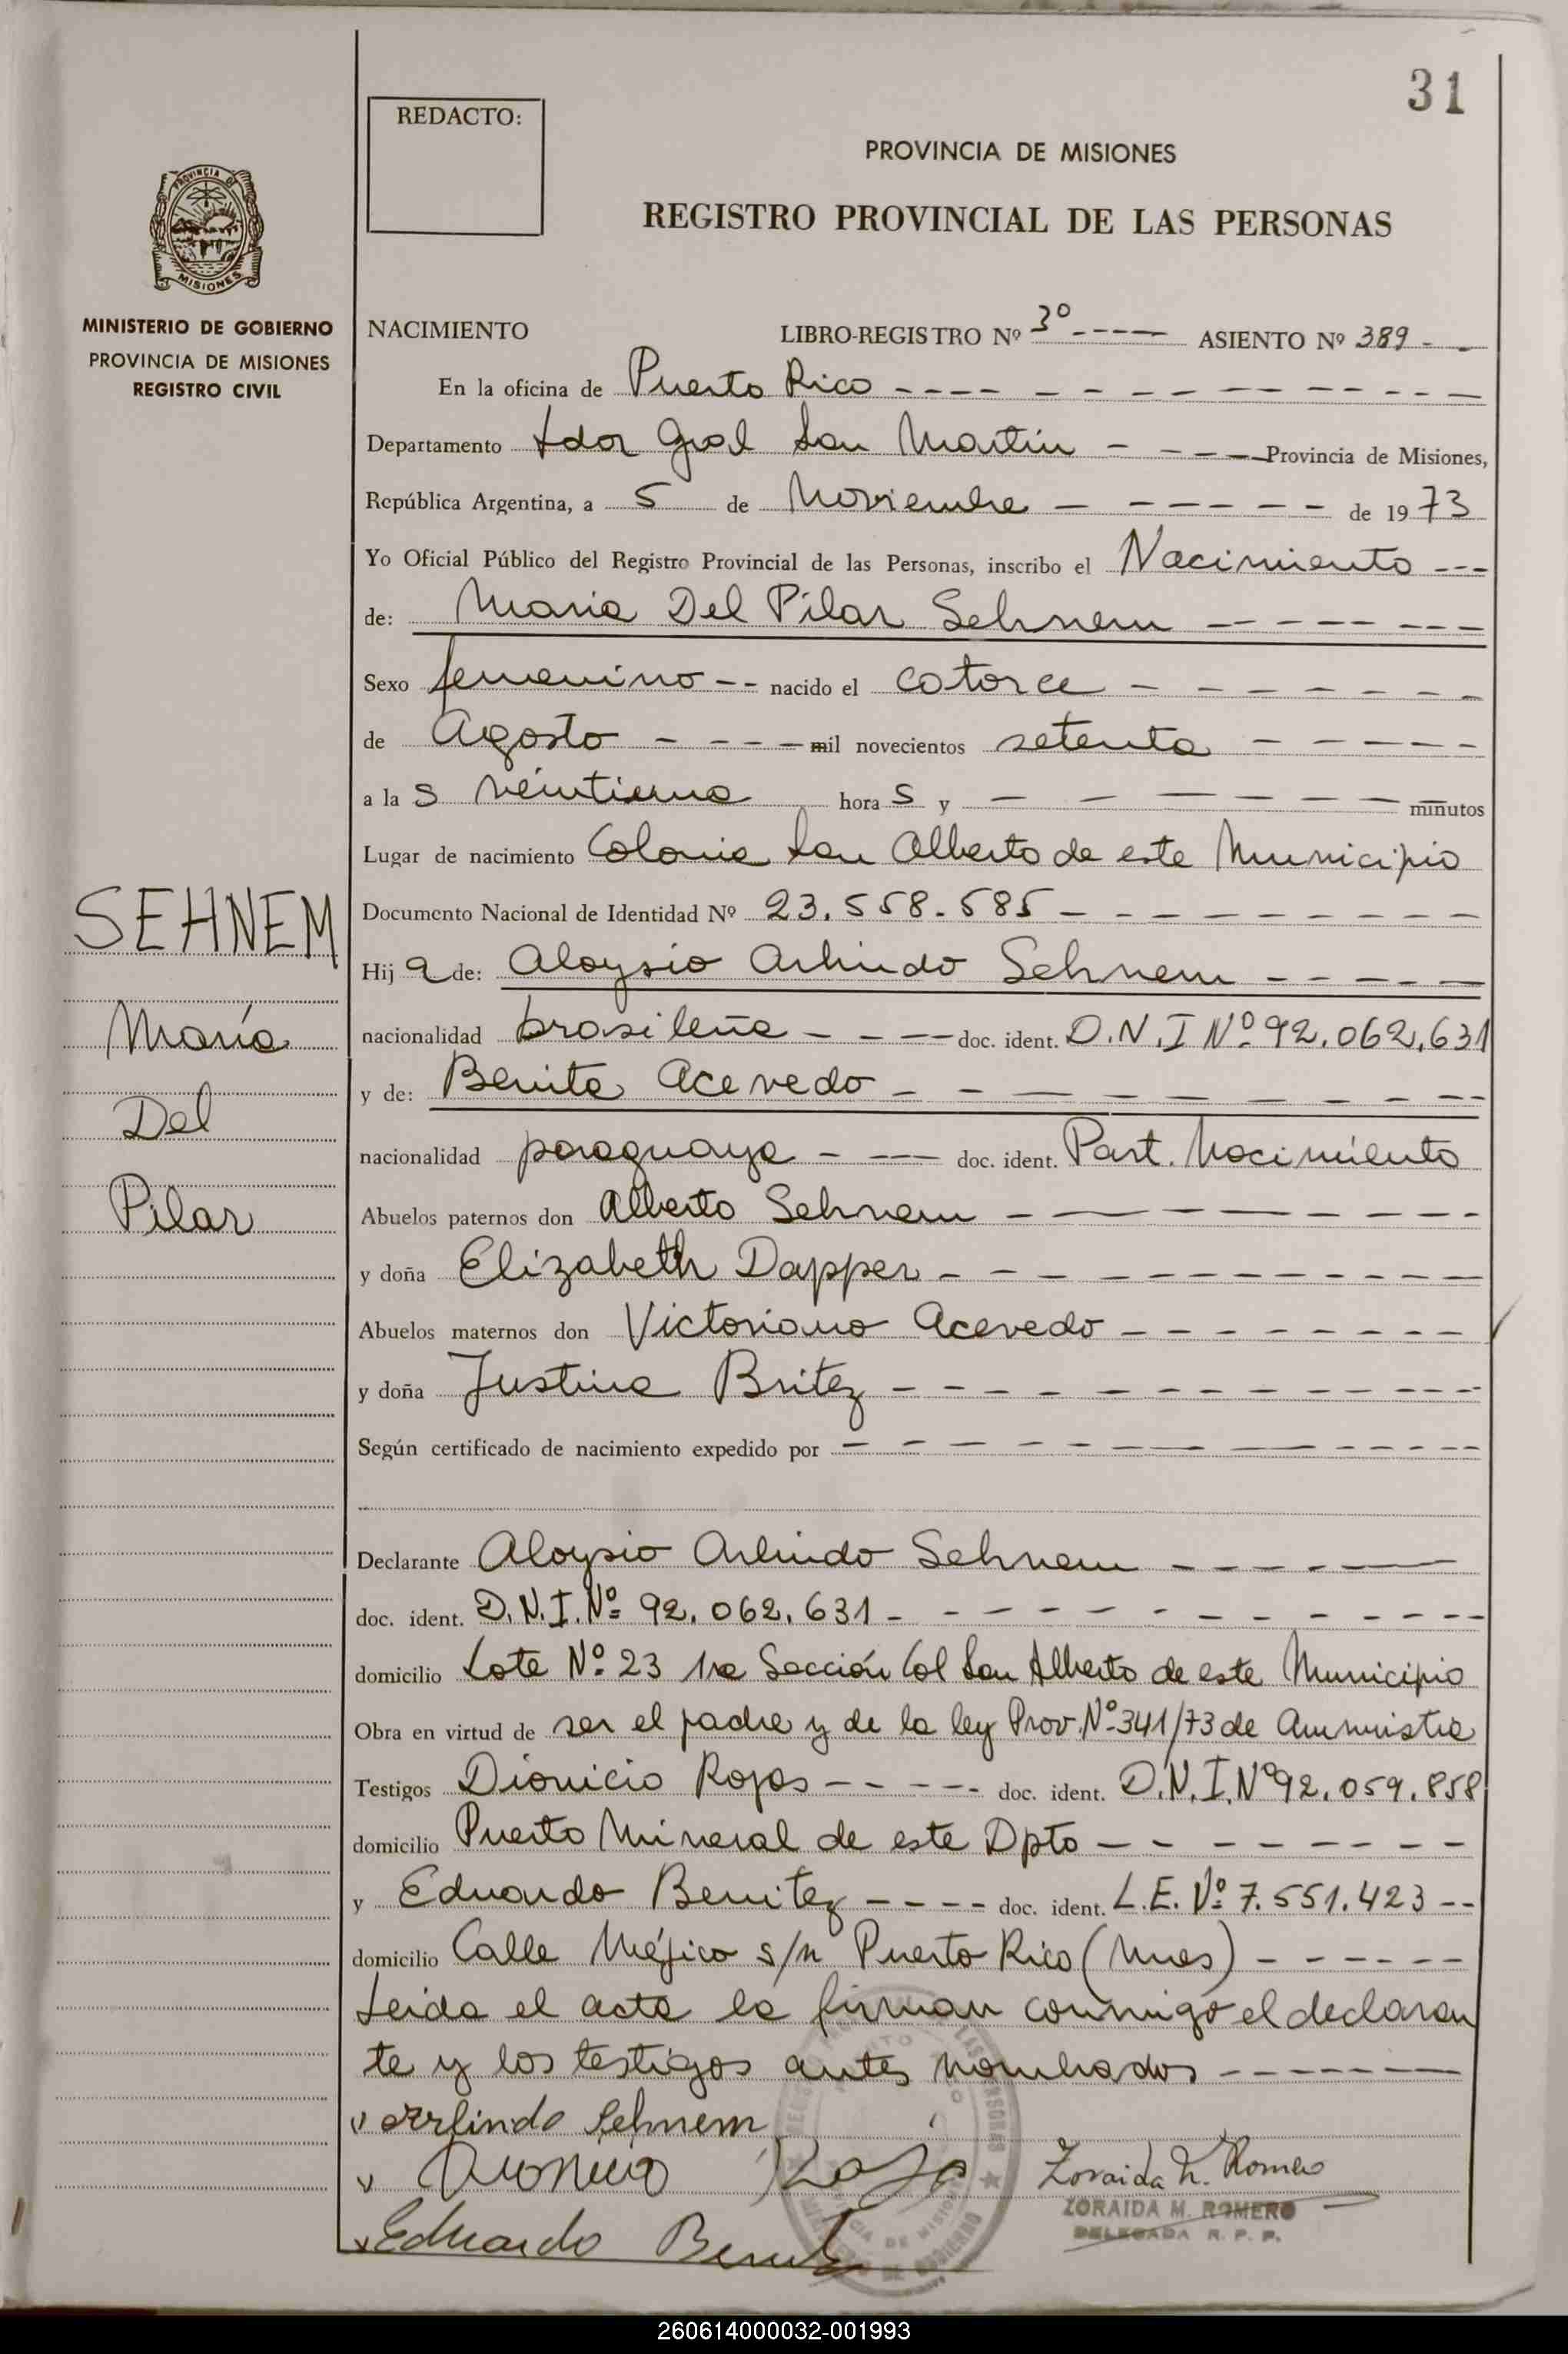 31
REDACTO:
PROVINCIA DE MISIONES
REGISTRO PROVINCIAL DE LAS PERSONAS
PROVINCIA DE
MISIONES
MINISTERIO DE GOBIERNO
PROVINCIA DE MISIONES
REGISTRO CIVIL
NACIMIENTO LIBRO-REGISTRO Nº 3º ---- ASIENTO Nº 389 - -
En la oficina de Puerto Rico ----
Departamento Ldor Gral San Martín - --- Provincia de Misiones,
República Argentina, a 5 de Noviembre ---- de 1973
Yo Oficial Público del Registro Provincial de las Personas, inscribo el Nacimiento ---
de: Maria Del Pilar Sehnem ----
Sexo femenino -- nacido el catorce ----
de Agosto ---- mil novecientos setenta ----
a la s veintiuna hora s y ---- minutos
Lugar de nacimiento Colonia San Alberto de este Municipio
SEHNEM
María
Del
Pilar
Documento Nacional de Identidad Nº 23.558.585 ----
Hij a de: Aloysio Arlindo Sehnem ----
nacionalidad brasileña ---- doc. ident. D.N.I Nº 92.062.631
y de: Benita Acevedo ----
nacionalidad paraguaya ---- doc. ident. Part. Nacimiento
Abuelos paternos don Alberto Sehnem ----
y doña Elizabeth Dapper ----
Abuelos maternos don Victoriano Acevedo ----
y doña Justina Britez ----
Según certificado de nacimiento expedido por ----
Declarante Aloysio Arlindo Sehnem ----
doc. ident. D.N.I. Nº 92.062.631 ----
domicilio Lote Nº 23 1ra Sección Col San Alberto de este Municipio
Obra en virtud de ser el padre y de la ley Prov. Nº 341/73 de Amnistia
Testigos Dionicio Rojas ---- doc. ident. D.N.I. Nº 92.059.858
domicilio Puerto Mineral de este Dpto ----
y Eduardo Benitez ---- doc. ident. L.E. Nº 7.551.423 --
domicilio Calle Méjico s/n Puerto Rico (Mnes) ----
Leida el acta la firman conmigo el declaran
te y los testigos antes nombrados ----
Arlindo Sehnem
Dionicio Roja
Zoraida M. Romero
ZORAIDA M. ROMERO
DELEGADA R. P. P.
Eduardo Benitez
260614000032-001993